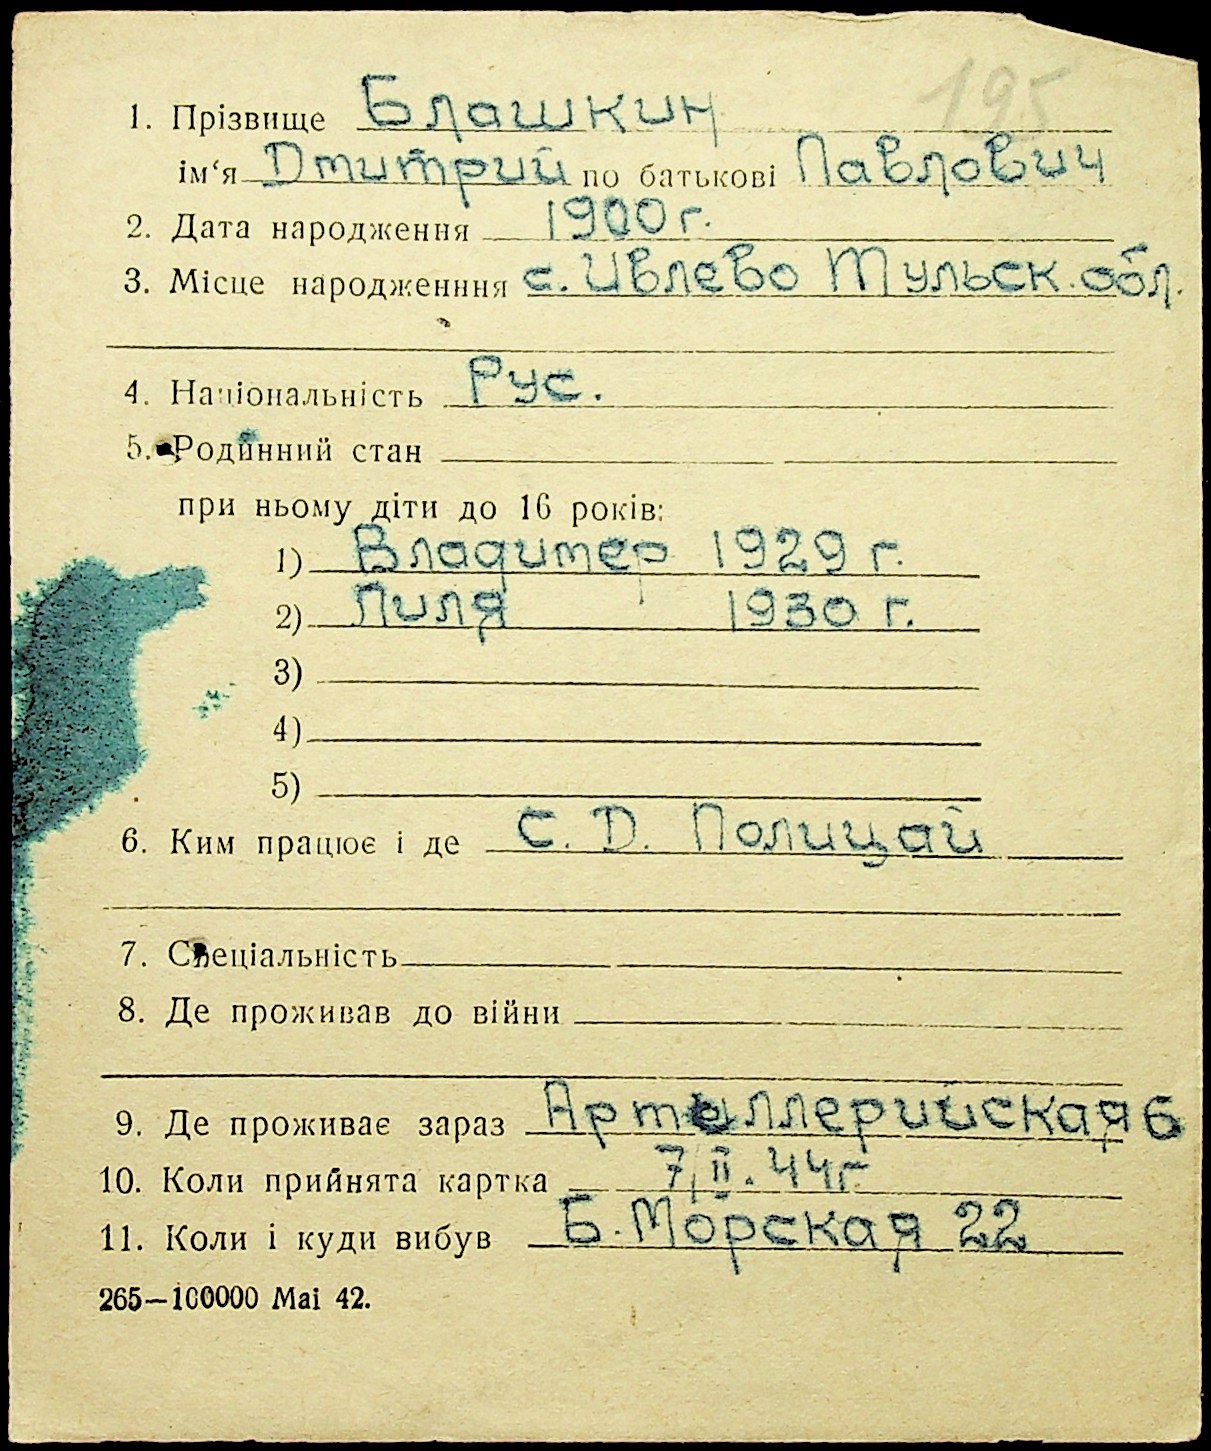 195
1. Прізвище Блашкин
ім‘я Дмитрий по батькові Павлович
2. Дата народження 1900 г.
3. Місце народженння с. Ивлево Тульск. обл.
4. Національність Рус.
5. Родинний стан
при ньому діти до 16 років:
1) Владимер 1929 г.
2) Лиля 1930 г.
3)
4)
5)
6. Ким працює і де С. Д. Полицай
7. Спеціальність
8. Де проживав до війни
9. Де проживає зараз Артиллерийская 6
10. Коли прийнята картка 7/II. 44 г.
11. Коли і куди вибув Б. Морская 22
265—100000 Mai 42.